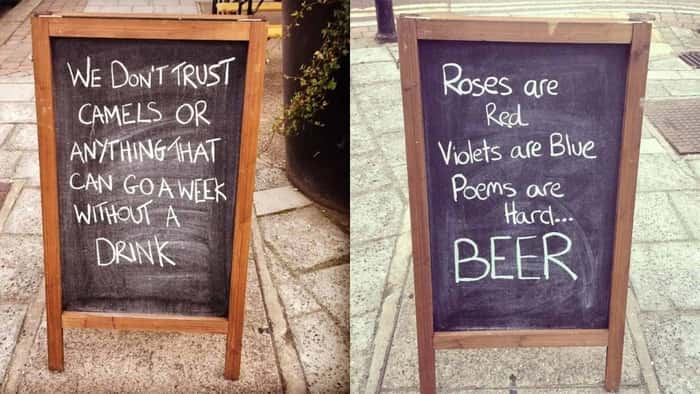 WE DON'T TRUST
CAMELS OR
ANYTHING THAT
CAN GO A WEEK
WITHOUT A
DRINK
Roses are
Red
Violets are Blue
Poems are
Hard...
BEER